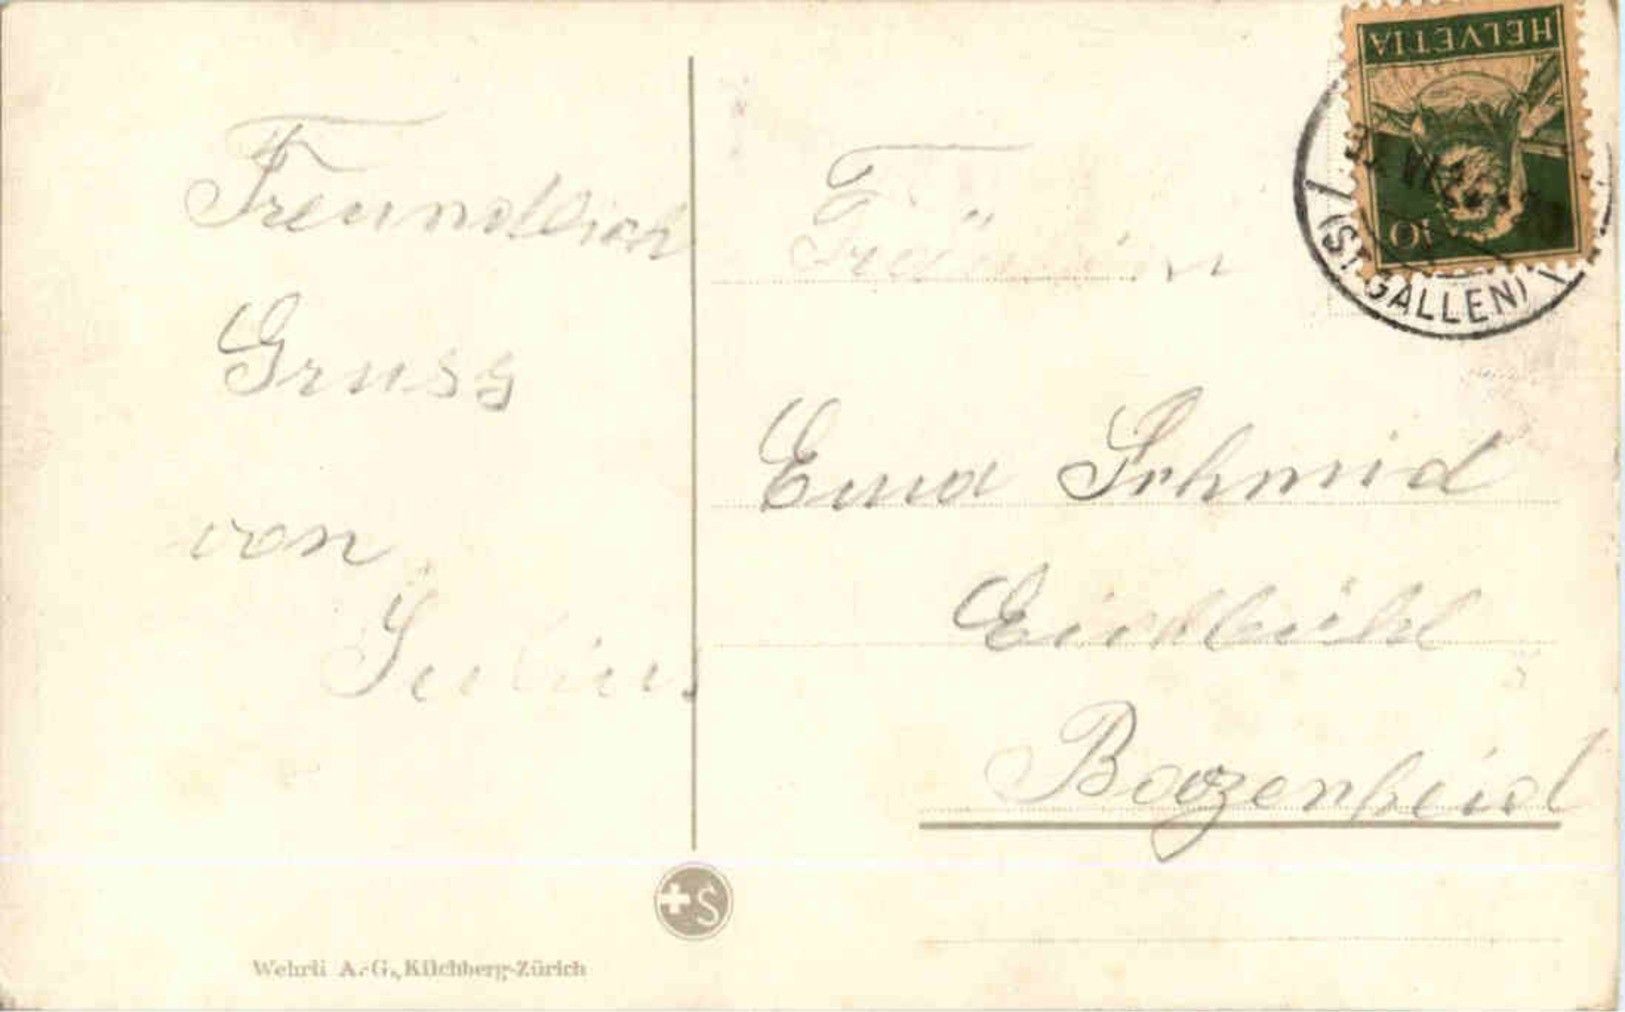 Freundlich
Gruss
von
Julius
HELVETIA
10
(ST. GALLEN)
Fräulein
Ema Schmid
Eindlbühl
Bazenheid
S
Wehrli A.-G., Kilchberg-Zürich